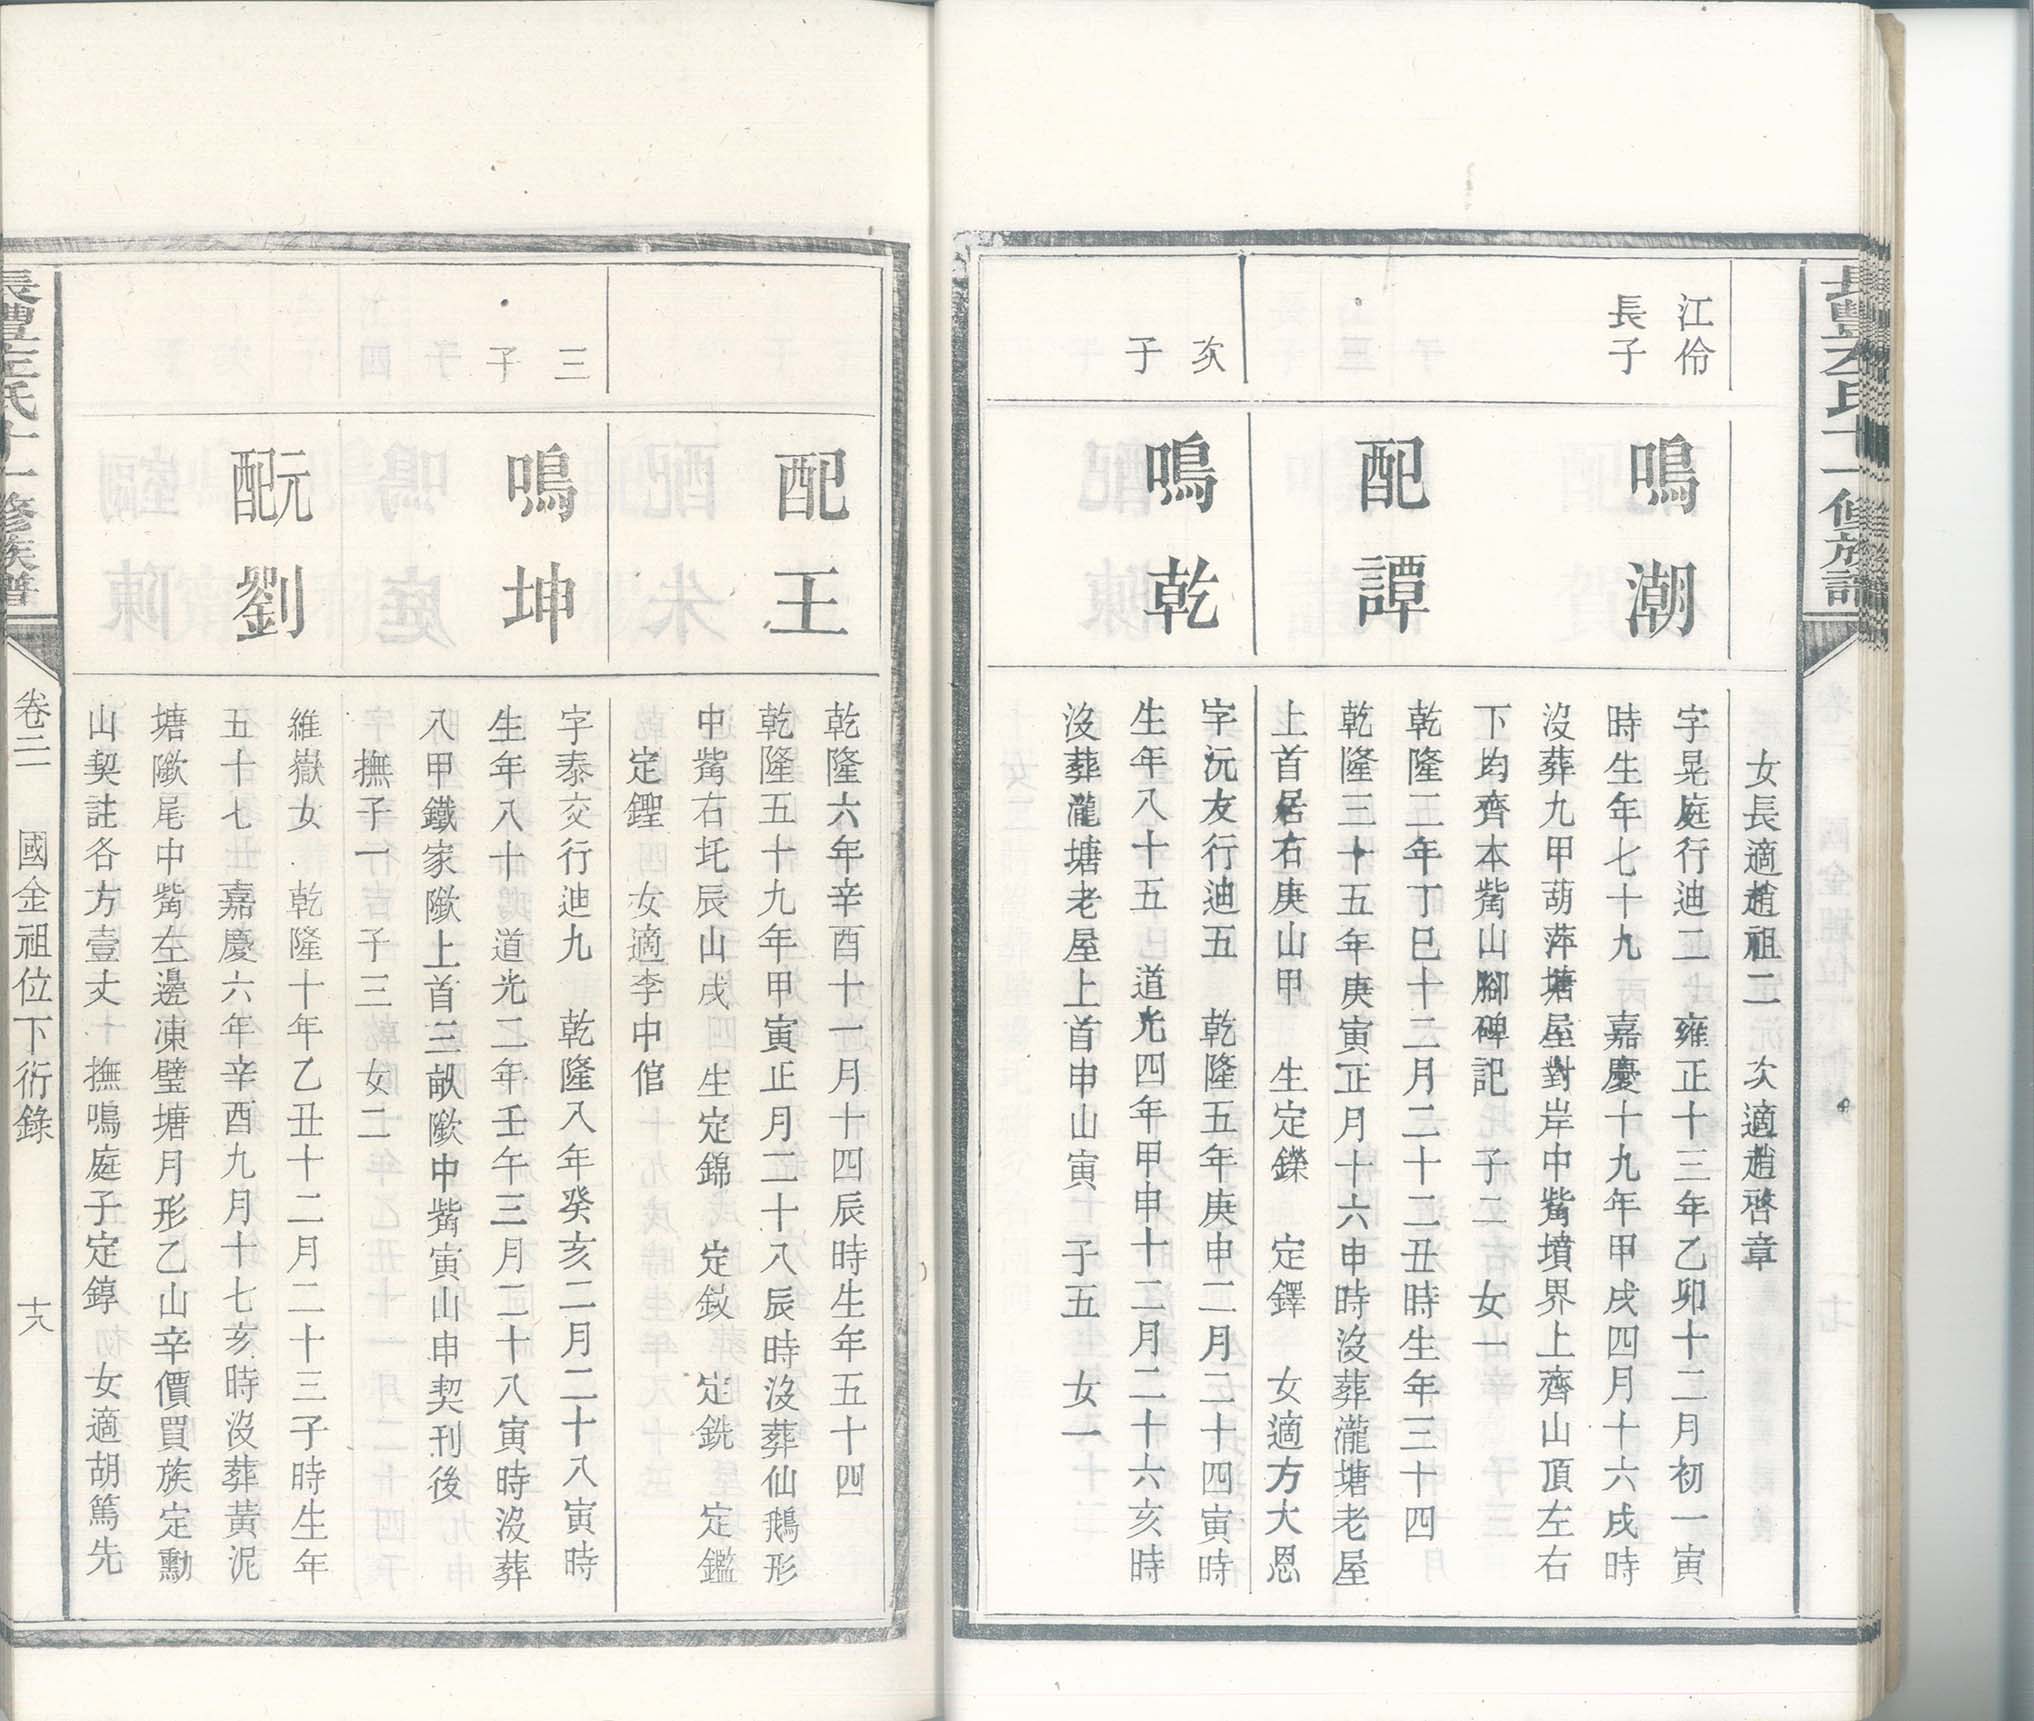 長豐左氏十一修族譜
女長適趙祖二　次適趙啓章
江伶
長子
鳴潮
字晃庭行迪二　雍正十三年乙卯十二月初一寅
時生年七十九　嘉慶十九年甲戌四月十六戌時
沒葬九甲葫萍塘屋對岸中嘴墳界上齊山頂左右
下均齊本嘴山腳碑記　子二　女一
配譚
乾隆二年丁巳十二月二十二丑時生年三十四
乾隆三十五年庚寅正月十六申時沒葬瀧塘老屋
上首居右庚山甲　生定鑠　定鐸　女適方大恩
次
子
鳴乾
字沅友行迪五　乾隆五年庚申二月二十四寅時
生年八十五　道光四年甲申十二月二十六亥時
沒葬瀧塘老屋上首申山寅　子五　女一
配王
乾隆六年辛酉十一月十四辰時生年五十四
乾隆五十九年甲寅正月二十八辰時沒葬仙鵝形
中嘴右圫辰山戌　生定錦　定鈫　定銑　定鑑
定鏗　女適李中倌
三
子
鳴坤
字泰交行迪九　乾隆八年癸亥二月二十八寅時
生年八十　道光二年壬午三月二十八寅時沒葬
八甲鐵家隞上首三畝隞中嘴寅山申契刊後
撫子一　子三　女二
元配劉
維嶽女　乾隆十年乙丑十二月二十三子時生年
五十七　嘉慶六年辛酉九月十七亥時沒葬黃泥
塘隞尾中嘴左邊凍璧塘月形乙山辛價買族定勳
山契註各方壹丈　撫鳴庭子定錞　女適胡篤先
長豐左氏十一修族譜
卷二　國金祖位下衍錄　十八